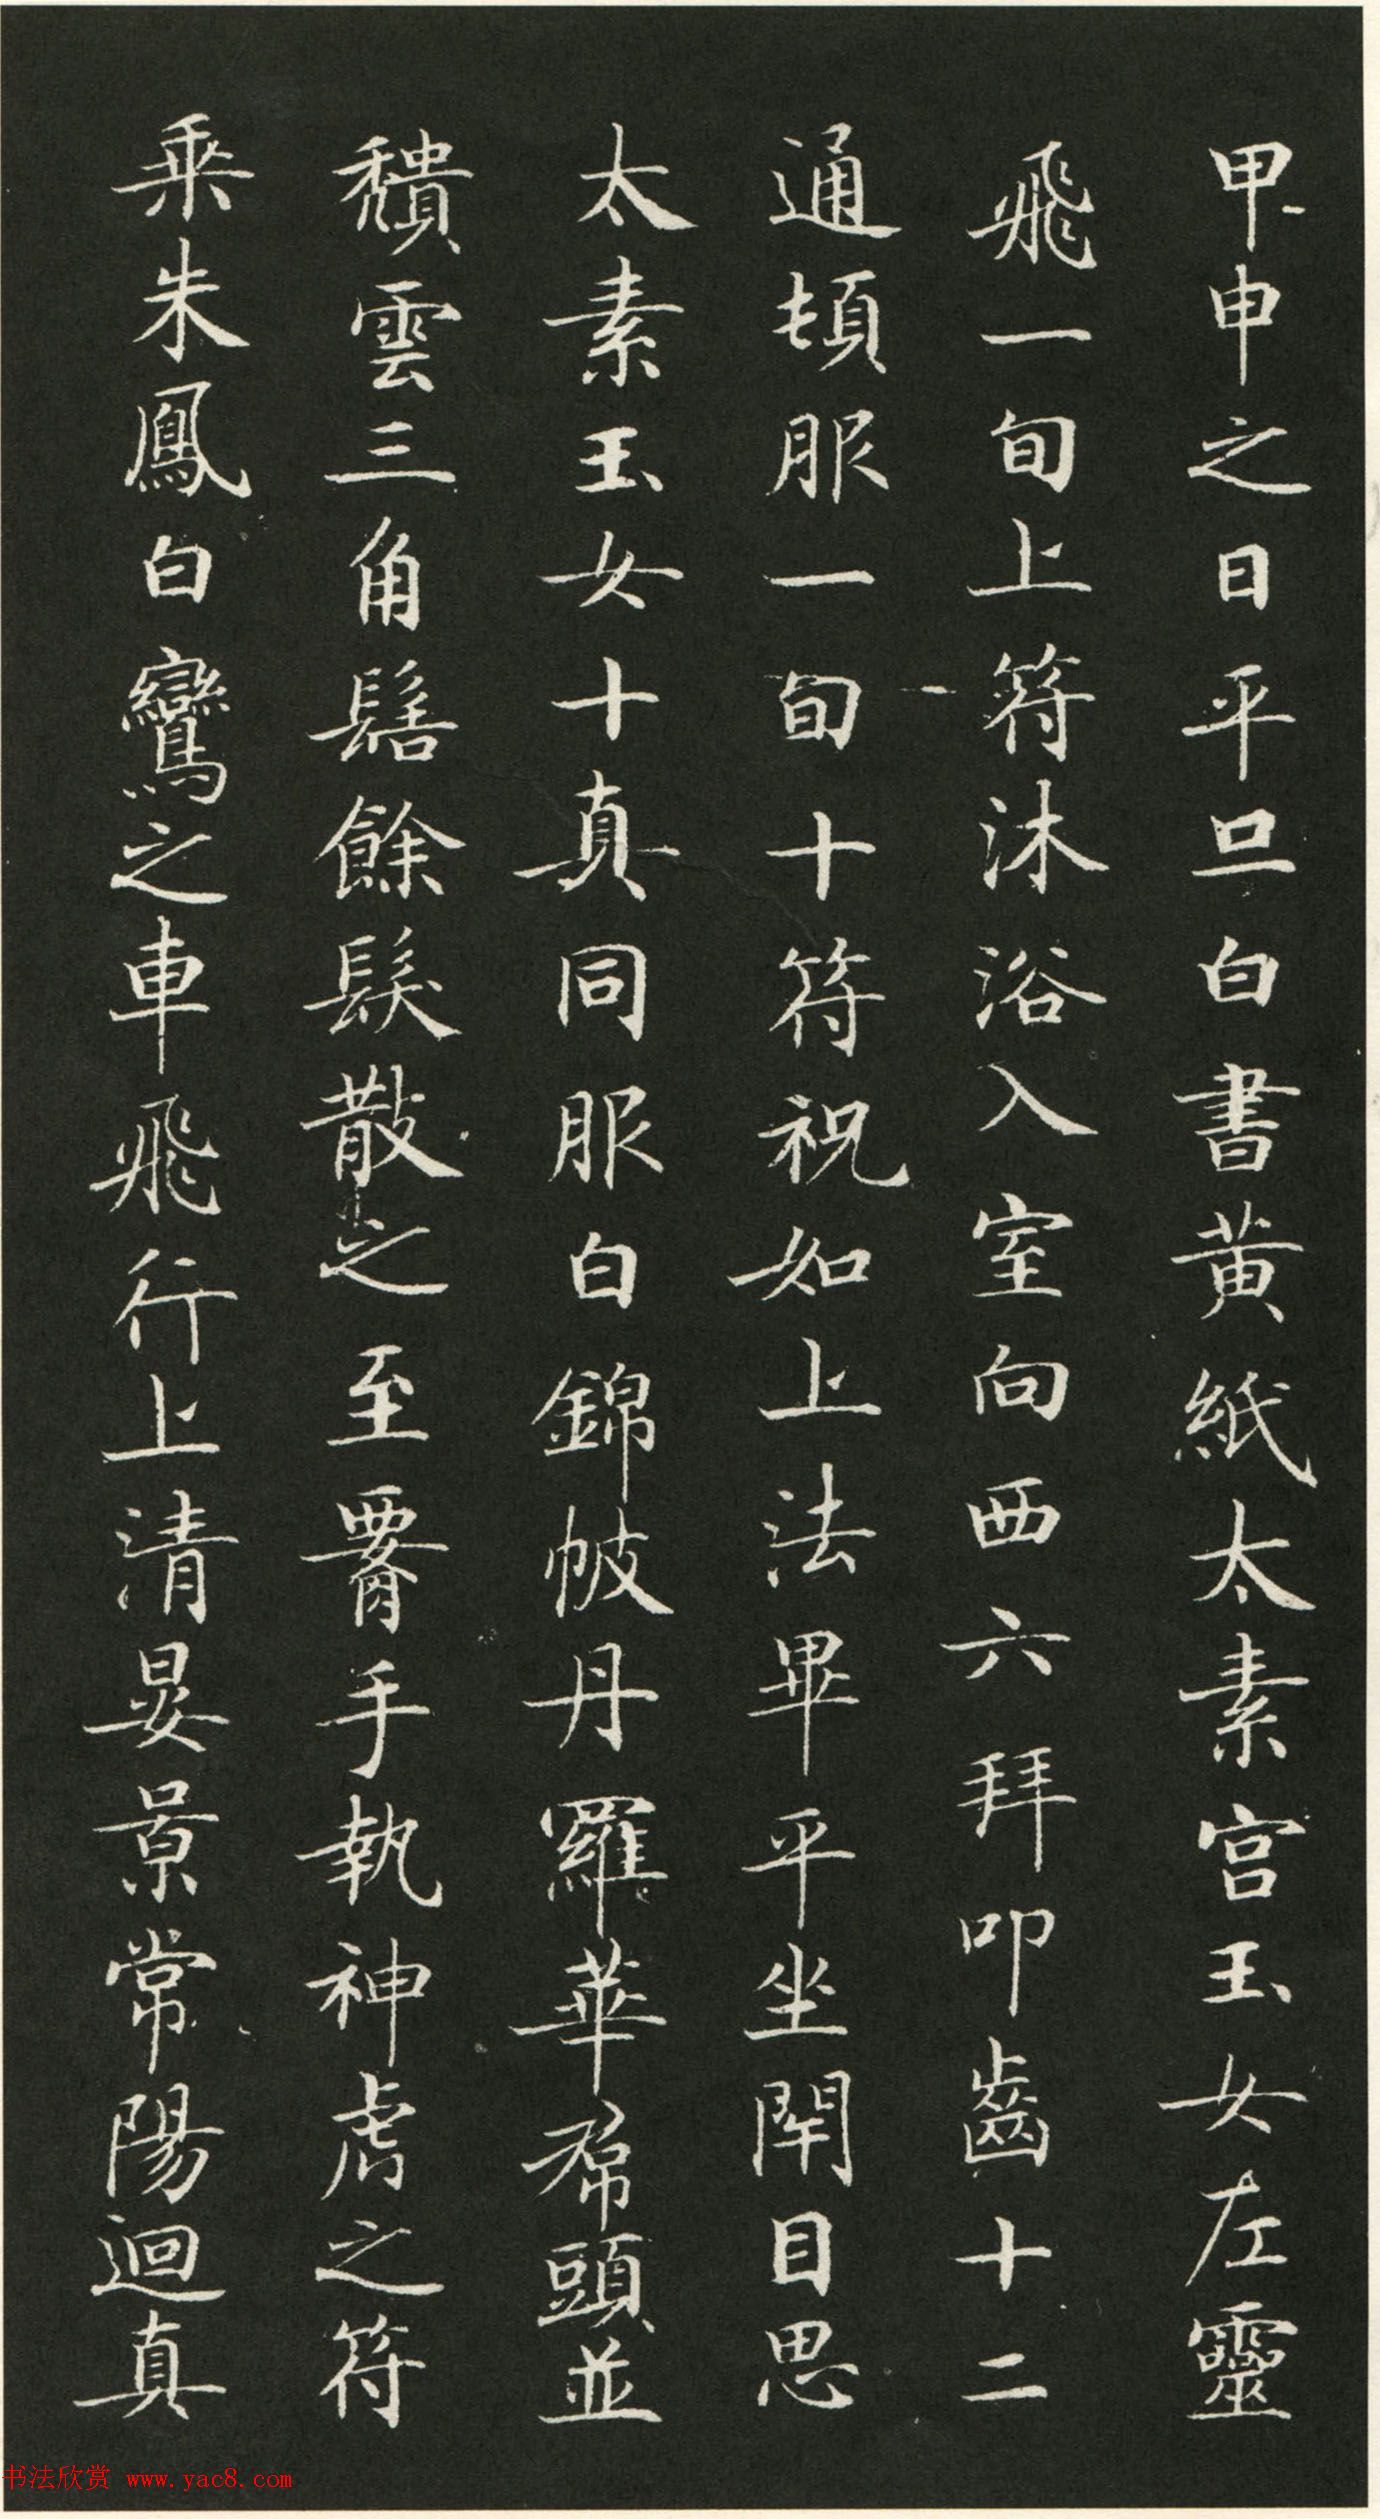 甲申之日平旦白書黄紙太素宫玉女左靈
飛一旬上符沐浴入室向西六拜叩齒十二
通頓服一旬十符祝如上法畢平坐閇目思
太素玉女十真同服白錦帔丹羅華帬頭並
穨雲三角髻餘髮散之至署手執神虎之符
乗朱鳳白鸞之車飛行上清晏景常陽迴真
书法欣赏 www.yac8.com